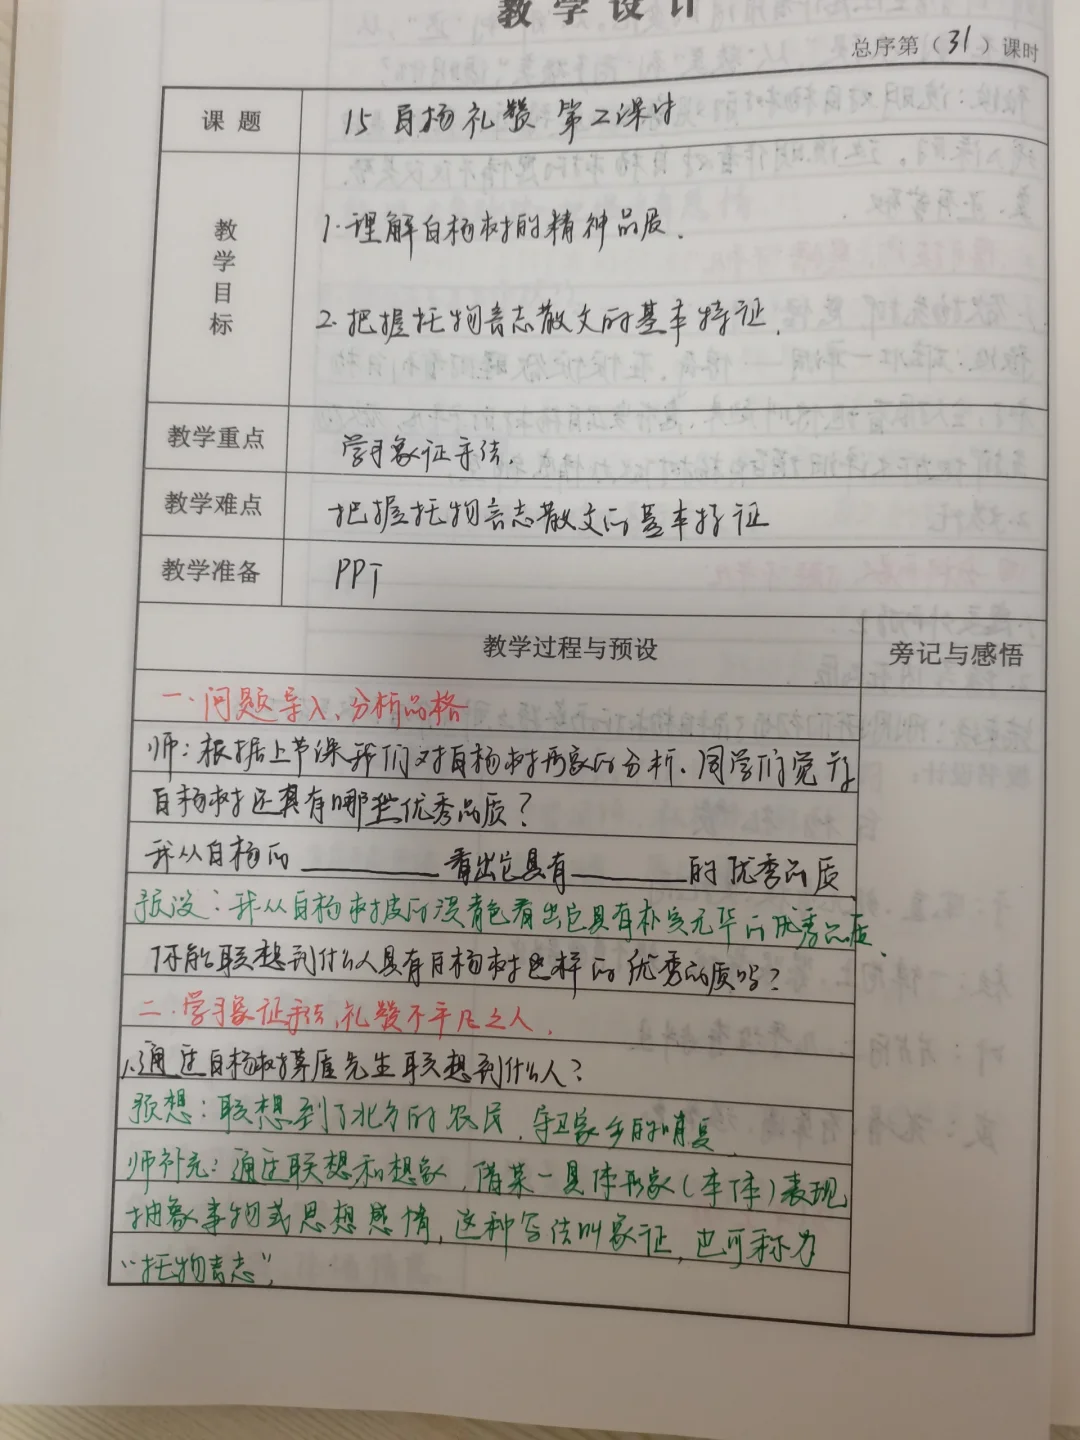 教学设计
总序第（31）课时
课题 15 白杨礼赞 第二课时
教学目标
1.理解白杨树的精神品质.
2.把握托物言志散文的基本特征.
教学重点 学习象征手法.
教学难点 把握托物言志散文的基本特征
教学准备 PPT
教学过程与预设 旁记与感悟
一.问题导入、分析品格
师：根据上节课我们对白杨树形象的分析、同学们觉得
白杨树还具有哪些优秀品质？
我从白杨的________看出它具有________的优秀品质
预设：我从白杨树皮的淡青色看出它具有朴实无华的优秀品质.
你能联想到什么人具有白杨树这样的优秀品质吗？
二.学习象征手法,礼赞不平凡之人.
1.通过白杨树茅盾先生联想到什么人？
预想：联想到了北方的农民，守卫家乡的哨兵.
师补充：通过联想和想象，借某一具体形象（本体）表现
抽象事物或思想感情，这种写法叫象征，也可称为
“托物言志”.